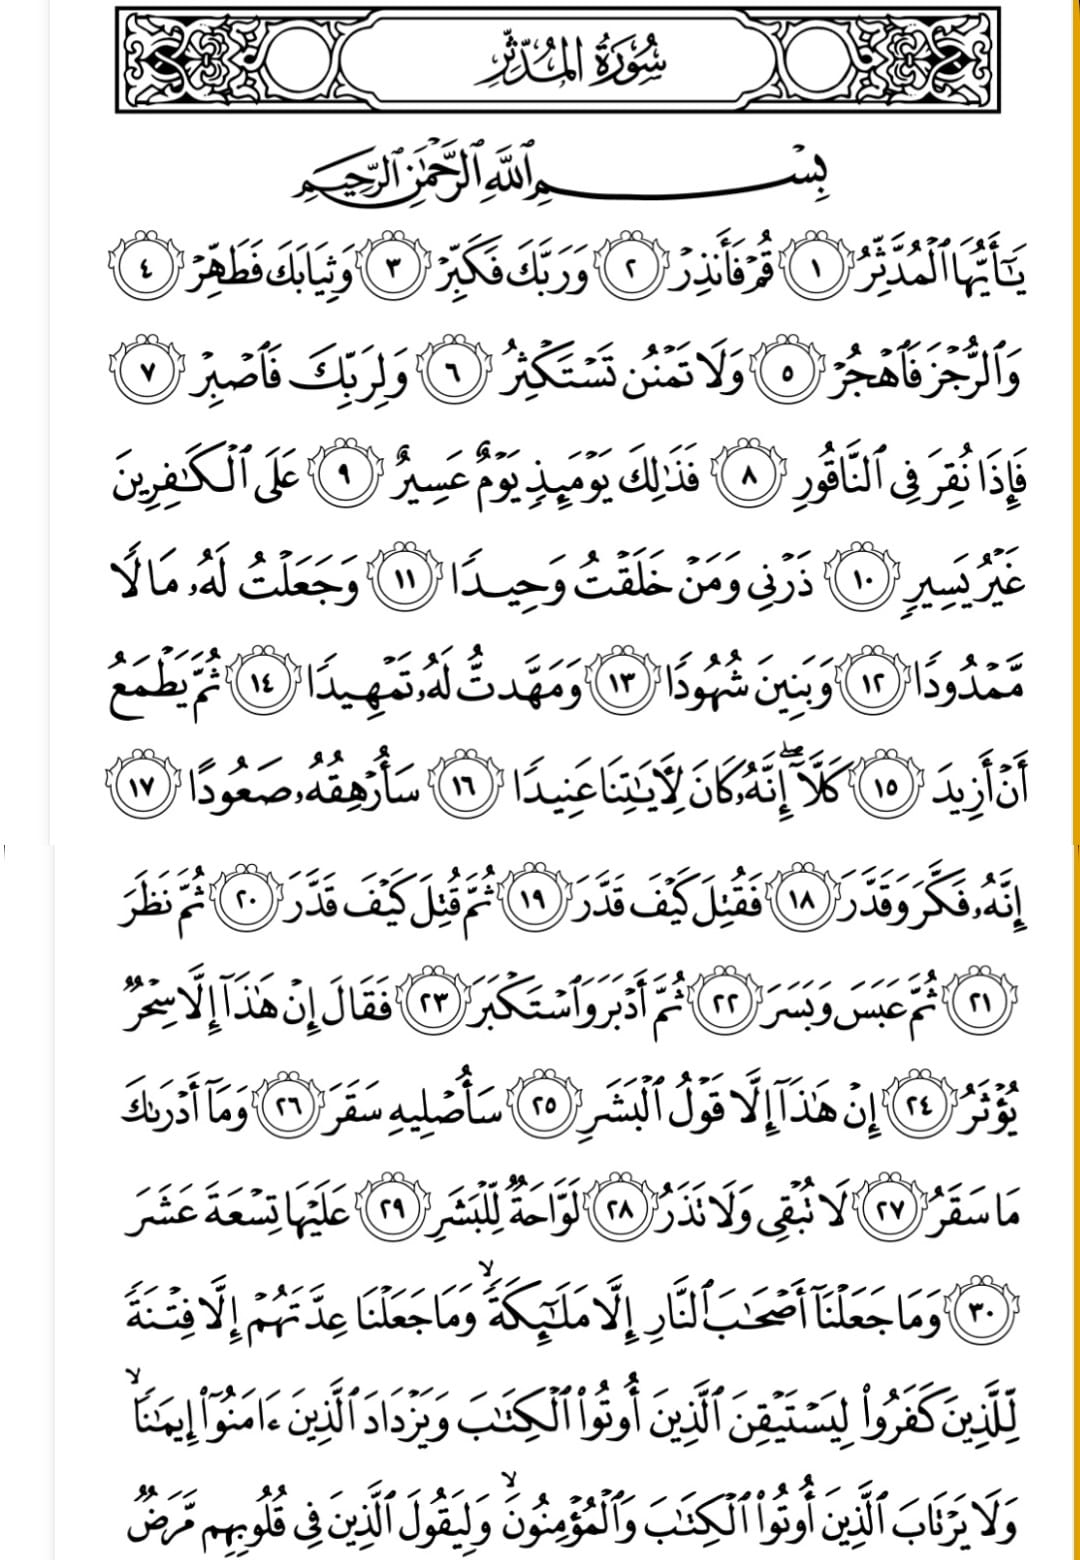 سُورَةُ المُدَّثِّرِ
بِسْمِ ٱللَّهِ ٱلرَّحْمَٰنِ ٱلرَّحِيمِ
يَٰٓأَيُّهَا ٱلْمُدَّثِّرُ ١ قُمْ فَأَنذِرْ ٢ وَرَبَّكَ فَكَبِّرْ ٣ وَثِيَابَكَ فَطَهِّرْ ٤
وَٱلرُّجْزَ فَٱهْجُرْ ٥ وَلَا تَمْنُن تَسْتَكْثِرُ ٦ وَلِرَبِّكَ فَٱصْبِرْ ٧
فَإِذَا نُقِرَ فِى ٱلنَّاقُورِ ٨ فَذَٰلِكَ يَوْمَئِذٍ يَوْمٌ عَسِيرٌ ٩ عَلَى ٱلْكَٰفِرِينَ
غَيْرُ يَسِيرٍ ١٠ ذَرْنِى وَمَنْ خَلَقْتُ وَحِيدًا ١١ وَجَعَلْتُ لَهُۥ مَالًا
مَّمْدُودًا ١٢ وَبَنِينَ شُهُودًا ١٣ وَمَهَّدتُّ لَهُۥ تَمْهِيدًا ١٤ ثُمَّ يَطْمَعُ
أَنْ أَزِيدَ ١٥ كَلَّآ ۖ إِنَّهُۥ كَانَ لِأَيَٰتِنَا عَنِيدًا ١٦ سَأُرْهِقُهُۥ صَعُودًا ١٧
إِنَّهُۥ فَكَّرَ وَقَدَّرَ ١٨ فَقُتِلَ كَيْفَ قَدَّرَ ١٩ ثُمَّ قُتِلَ كَيْفَ قَدَّرَ ٢٠ ثُمَّ نَظَرَ
٢١ ثُمَّ عَبَسَ وَبَسَرَ ٢٢ ثُمَّ أَدْبَرَ وَٱسْتَكْبَرَ ٢٣ فَقَالَ إِنْ هَٰذَآ إِلَّا سِحْرٌ
يُؤْثَرُ ٢٤ إِنْ هَٰذَآ إِلَّا قَوْلُ ٱلْبَشَرِ ٢٥ سَأُصْلِيهِ سَقَرَ ٢٦ وَمَآ أَدْرَىٰكَ
مَا سَقَرُ ٢٧ لَا تُبْقِى وَلَا تَذَرُ ٢٨ لَوَّاحَةٌ لِّلْبَشَرِ ٢٩ عَلَيْهَا تِسْعَةَ عَشَرَ
٣٠ وَمَا جَعَلْنَآ أَصْحَٰبَ ٱلنَّارِ إِلَّا مَلَٰٓئِكَةً ۙ وَمَا جَعَلْنَا عِدَّتَهُمْ إِلَّا فِتْنَةً
لِّلَّذِينَ كَفَرُوا۟ لِيَسْتَيْقِنَ ٱلَّذِينَ أُوتُوا۟ ٱلْكِتَٰبَ وَيَزْدَادَ ٱلَّذِينَ ءَامَنُوٓا۟ إِيمَٰنًا ۙ
وَلَا يَرْتَابَ ٱلَّذِينَ أُوتُوا۟ ٱلْكِتَٰبَ وَٱلْمُؤْمِنُونَ ۙ وَلِيَقُولَ ٱلَّذِينَ فِى قُلُوبِهِم مَّرَضٌ